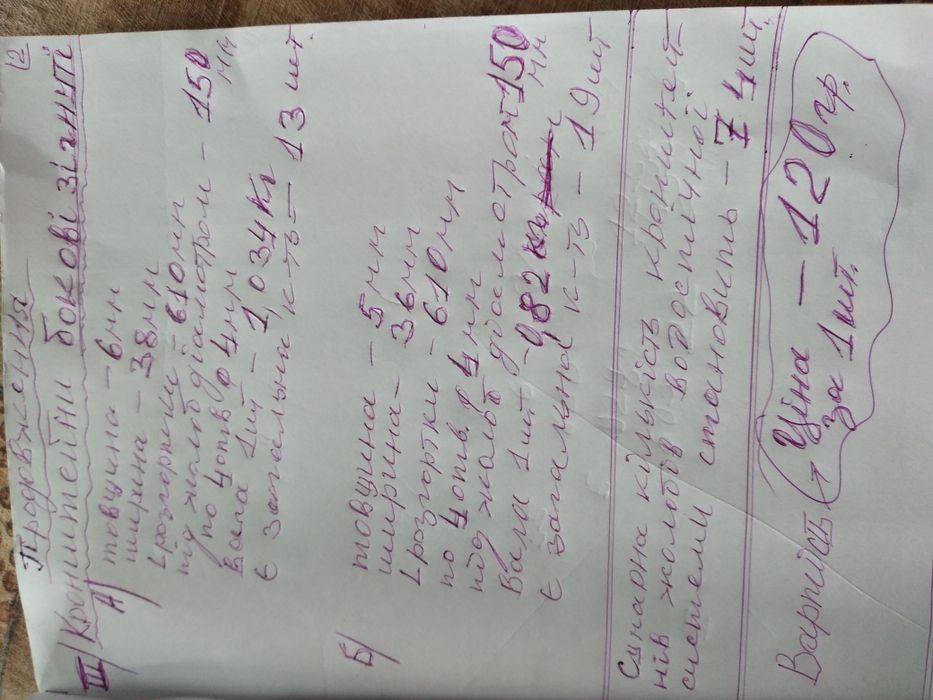 Продовження
2
III/ Кронштейни бокові зігнуті
А/ товщина – 6мм
ширина – 38мм
L розгортки – 610мм
під жолоб діаметром – 150 мм
по 4 отв ф 4мм
Вага 1шт – 1,034 кг
Є загальна к-ть – 13 шт.
Б/ товщина – 5мм
ширина – 36мм
L розгортки – 610мм
по 4 отв. ф 4мм
під жолоб діаметром 150 мм
Вага 1шт – 0,982
Є загальна к-ть – 19шт
Сумарна кількість кронштей-
нів жолобів водостійної
системи становить – 74шт.
Вартість (Ціна – 120гр.
за 1шт.